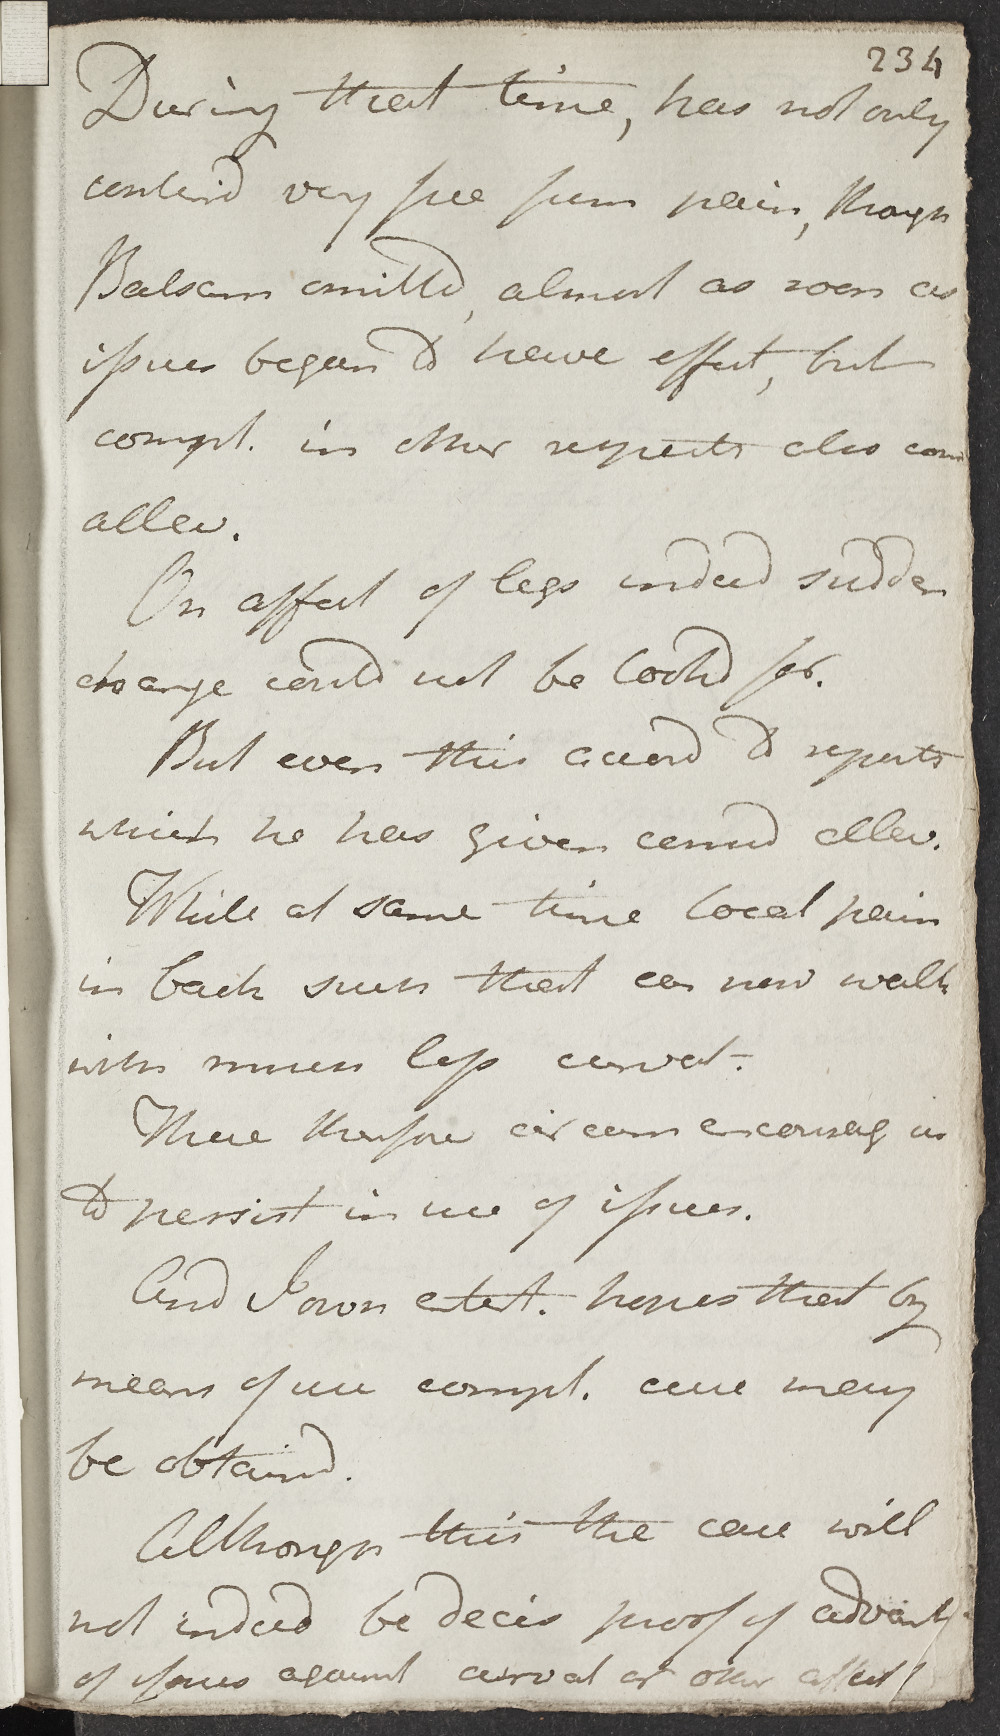 234
During that time, has not only
contind very free from pain, though
Balsam omittd, almost as soon as
issues began to have effect, but
compl. in other respects also cons
allev.
On affect of legs indeed sudden
change could not be lookd for.
But even this accord to reports
which he has given consid allev.
While at same time local pain
in back such that can now walk
with much less curvat.
These therefore circum encourag us
to persist in use of issues.
And I own entert. hopes that by
means of use compl. cure may
be obtaind.
Although this the case will
not indeed be decis proof of advant
of issues against curvat or other affect